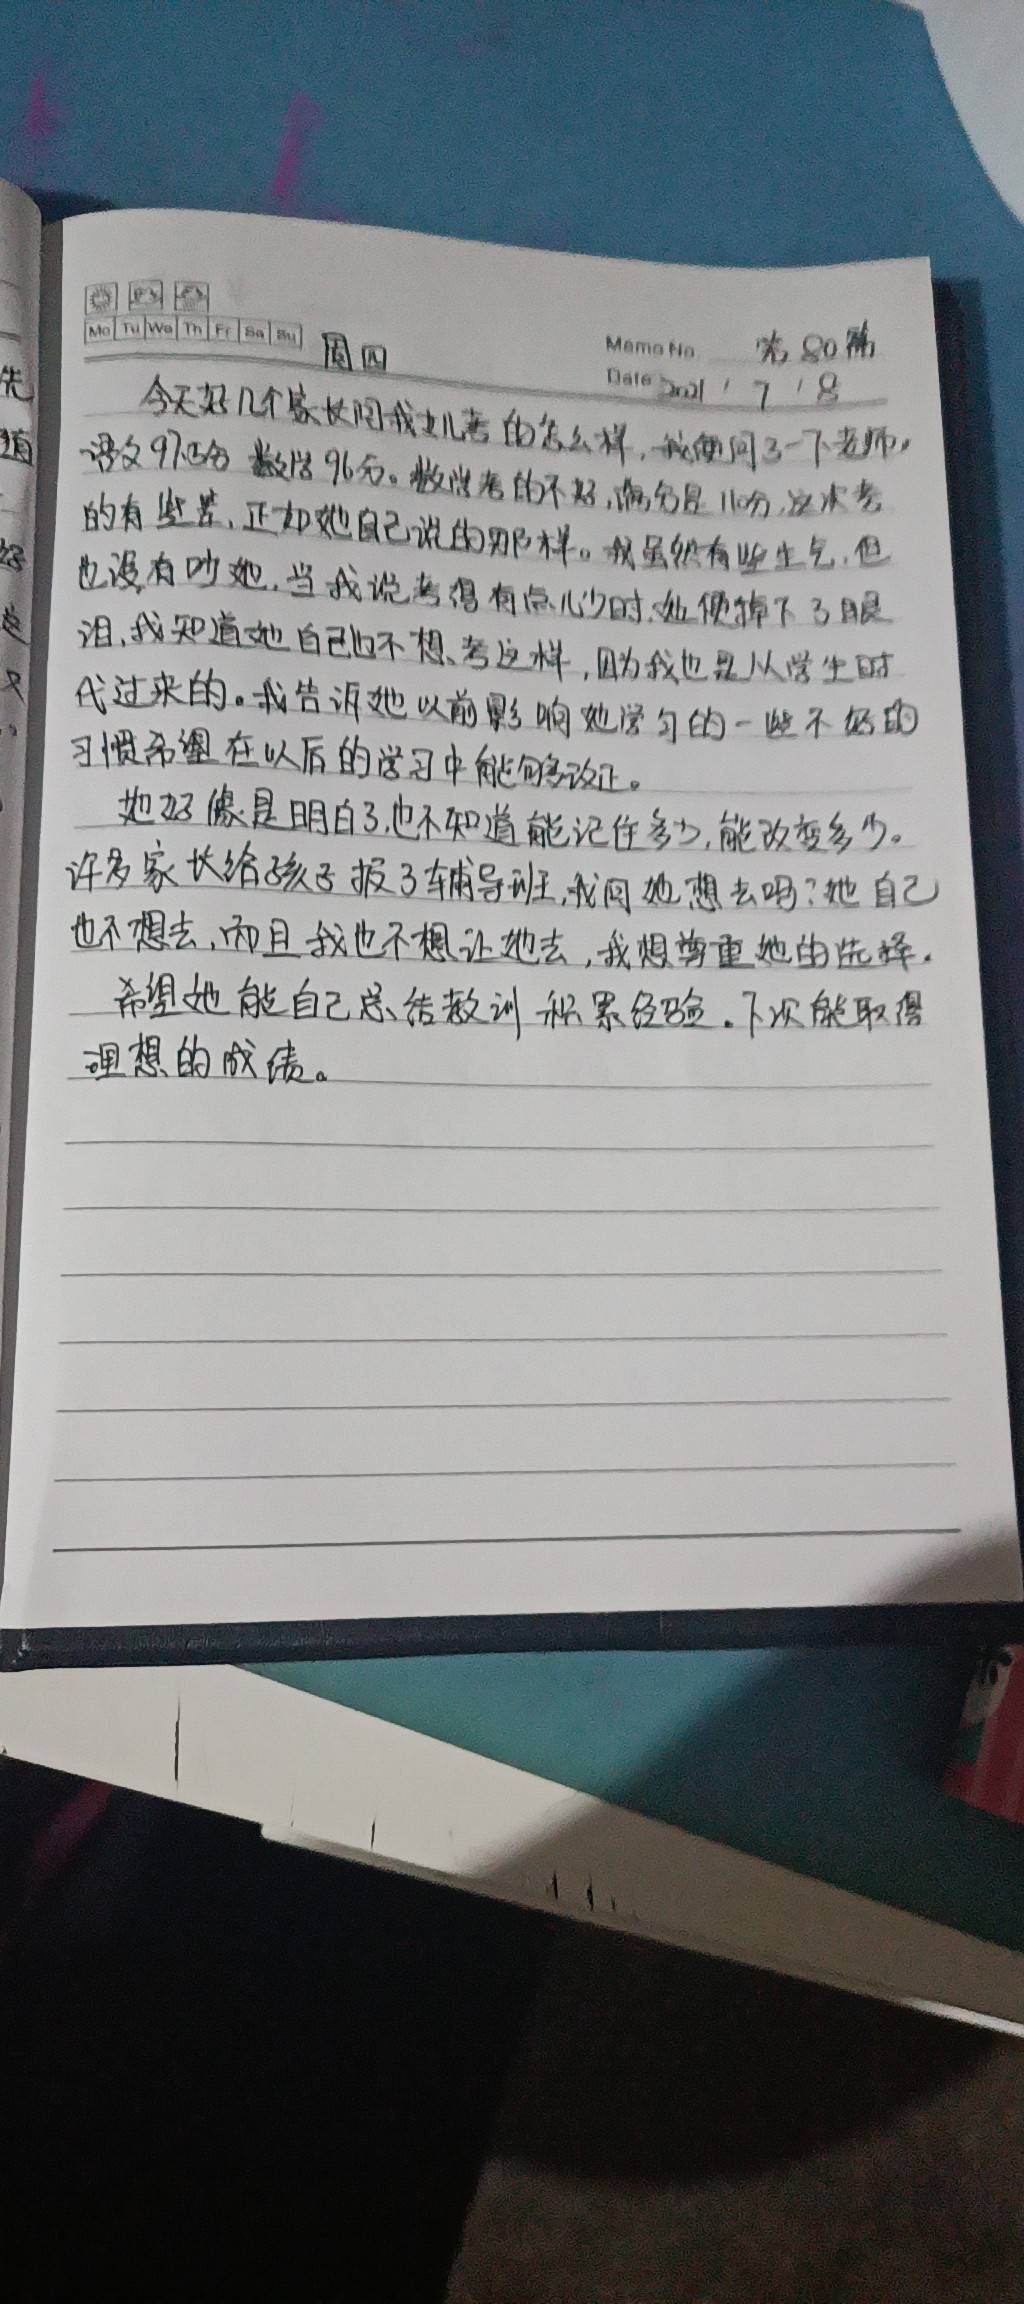 Mo Tu We Th Fr Sa Su
周四
Memo No. 第80篇
Date 2021 / 7 / 8
今天好几个家长问我女儿考的怎么样,我便问了一下老师。
语文97.5分 数学96分。数学考的不好,满分是110分,这次考
的有些差,正如她自己说的那样。我虽然有些生气,但
也没有吵她,当我说考得有点儿少时,她便掉下了眼
泪,我知道她自己也不想考这样,因为我也是从学生时
代过来的。我告诉她以前影响她学习的一些不好的
习惯希望在以后的学习中能够改正。
她好像是明白了,也不知道能记住多少,能改变多少。
许多家长给孩子报了辅导班,我问她想去吗?她自己
也不想去,而且我也不想让她去,我想尊重她的选择.
希望她能自己总结教训 积累经验.下次能取得
理想的成绩。
先
道
好
这
又